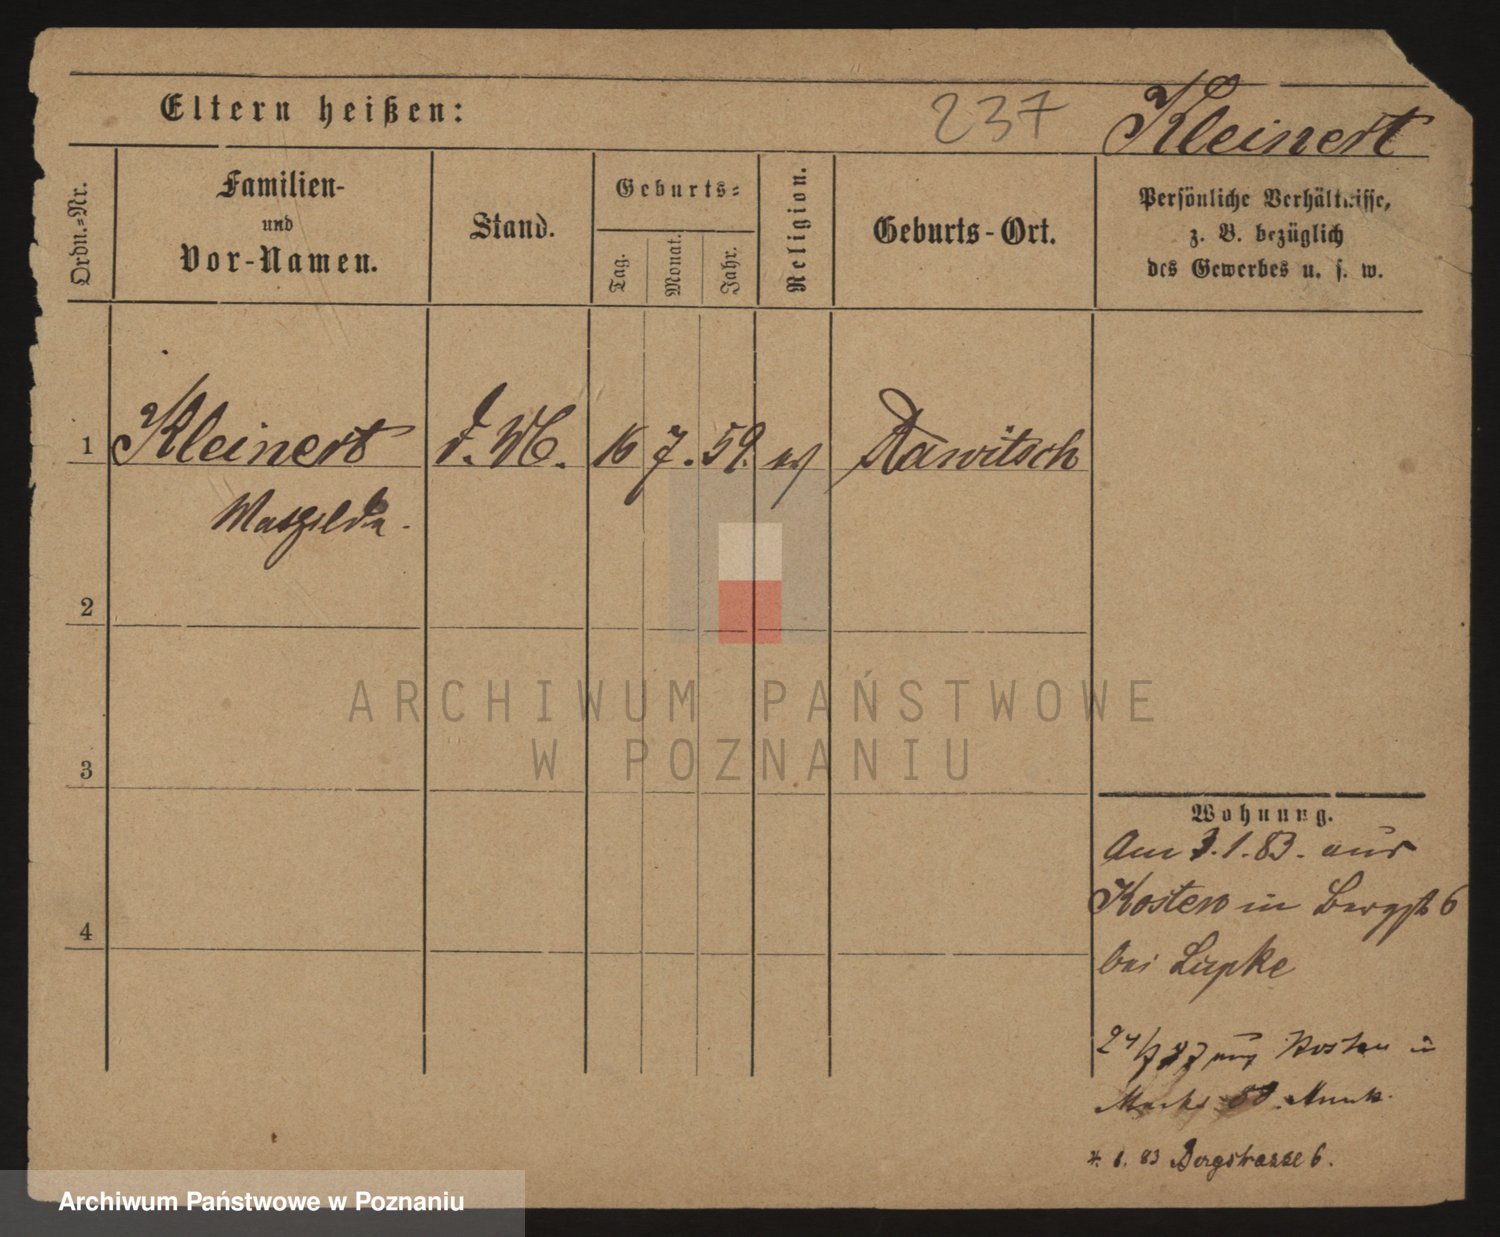 Eltern heißen:
237 Kleinert
Ordn.-Nr.
Familien-
und
Vor-Namen.
Stand.
Geburts-
Tag.
Monat.
Jahr.
Religion.
Geburts-Ort.
Persönliche Verhältnisse,
z. B. bezüglich
des Gewerbes u. s. w.
1 Kleinert d. M. 16 7. 59. Rawitsch
2
3
4
ARCHIWUM PAŃSTWOWE
W POZNANIU
Wohnung.
Am 3.1.83. aus
Kosten in Bergst 6
bei Lüpke
24/7 87 aus Kosten in
Markt
1. 83 Bergstrasse 6.
Archiwum Państwowe w Poznaniu